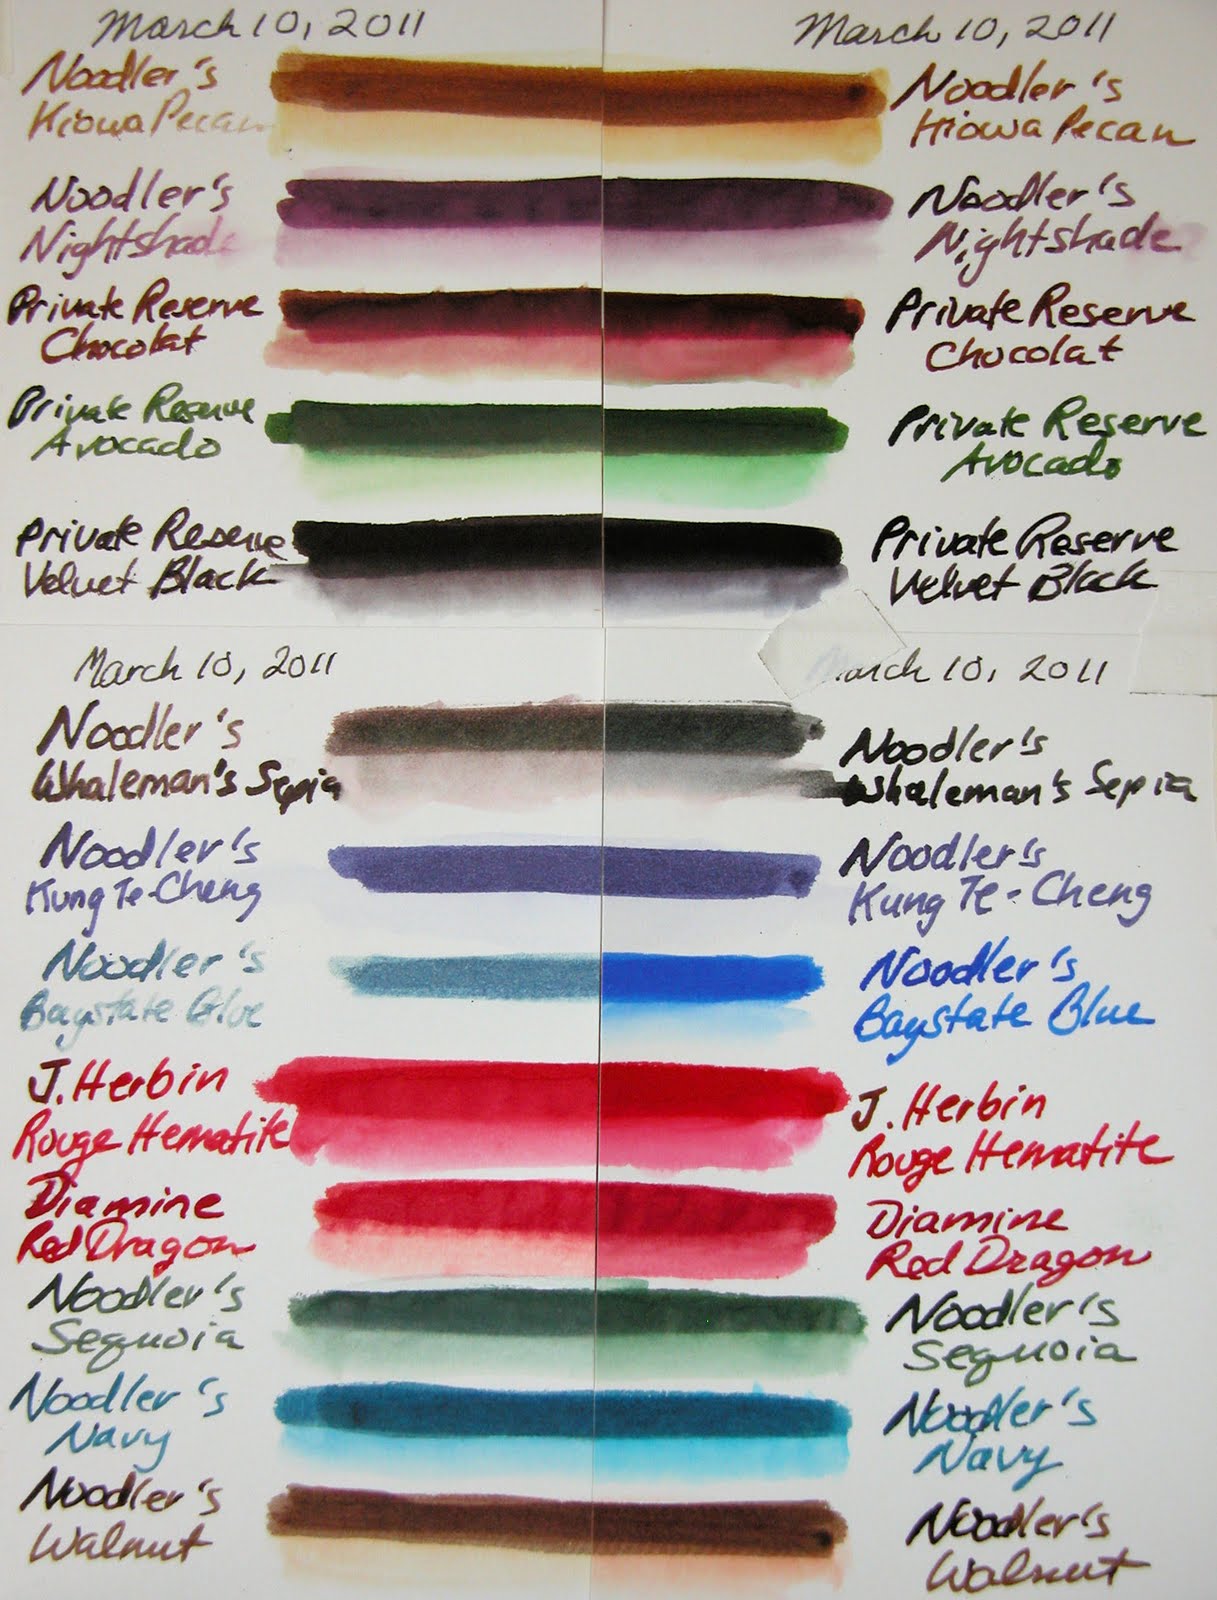 March 10, 2011
Noodler's
Kiowa Pecan
Noodler's
Nightshade
Private Reserve
Chocolat
Private Reserve
Avocado
Private Reserve
Velvet Black
March 10, 2011
Noodler's
Kiowa Pecan
Noodler's
Nightshade
Private Reserve
Chocolat
Private Reserve
Avocado
Private Reserve
Velvet Black
March 10, 2011
Noodler's
Whaleman's Sepia
Noodler's
Kung Te-Cheng
Noodler's
Baystate Blue
J. Herbin
Rouge Hematite
Diamine
Red Dragon
Noodler's
Sequoia
Noodler's
Navy
Noodler's
Walnut
March 10, 2011
Noodler's
Whaleman's Sepia
Noodler's
Kung Te-Cheng
Noodler's
Baystate Blue
J. Herbin
Rouge Hematite
Diamine
Red Dragon
Noodler's
Sequoia
Noodler's
Navy
Noodler's
Walnut